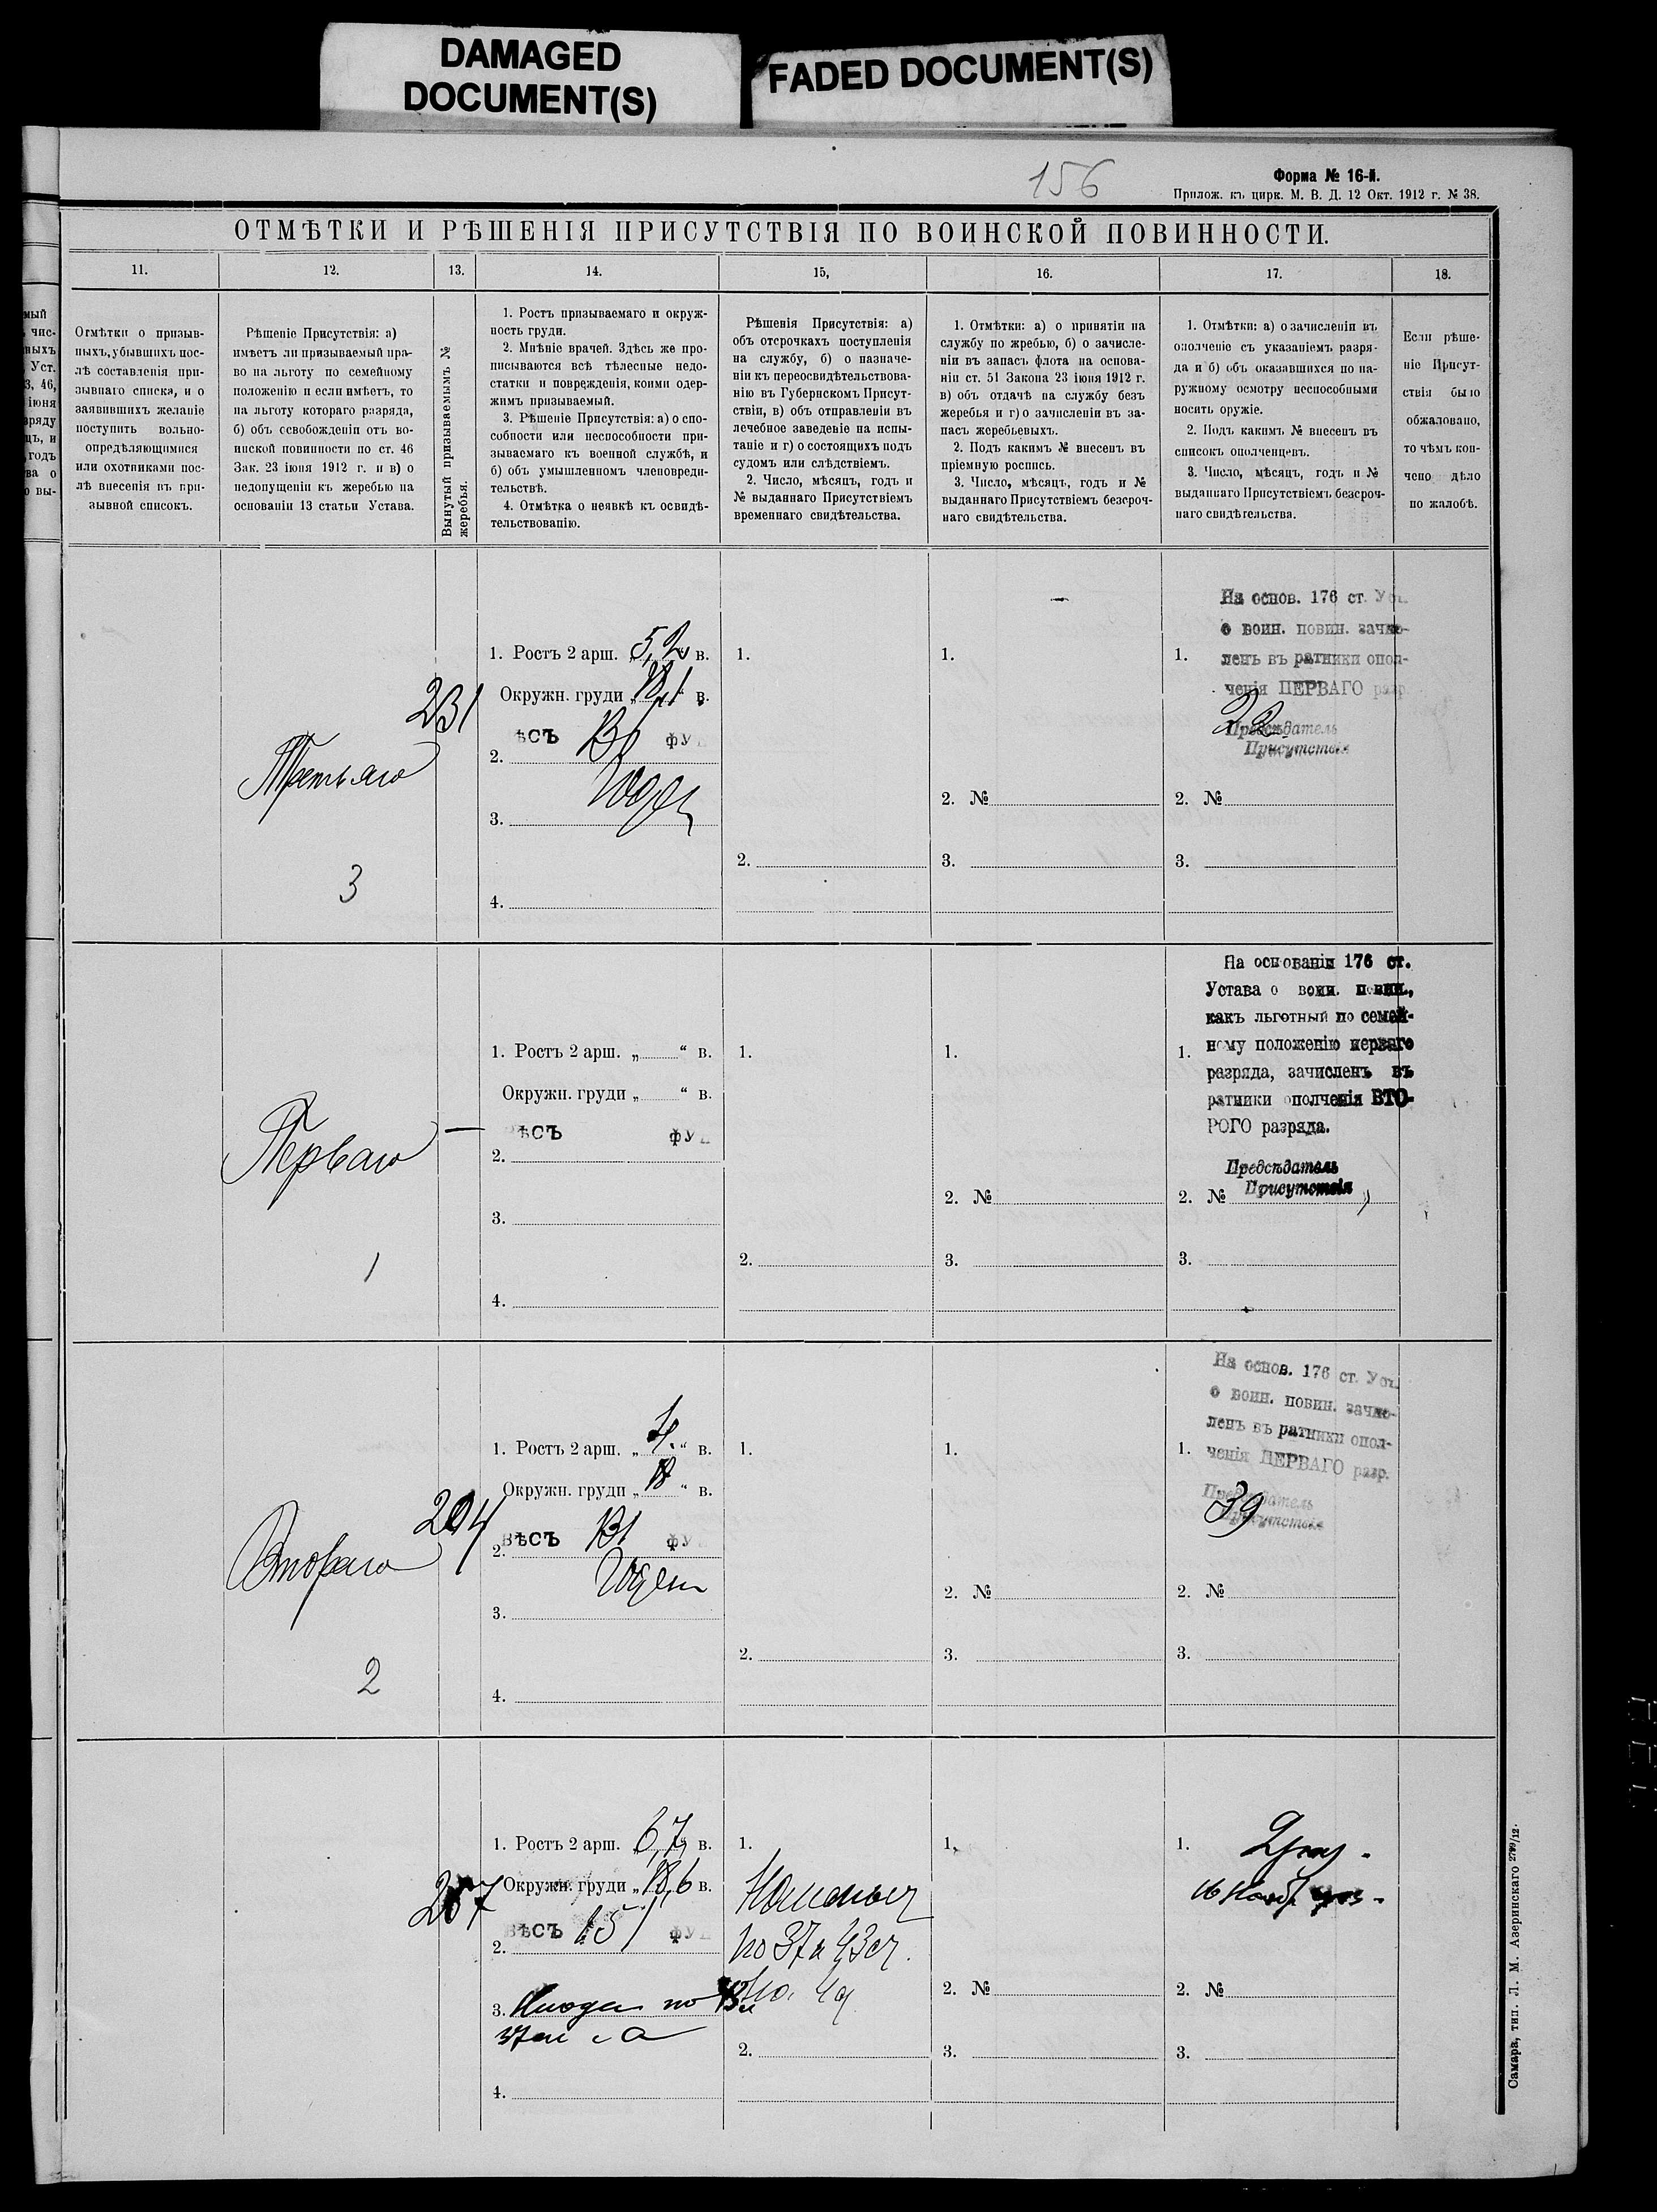 DAMAGED
DOCUMENT(S)
FADED DOCUMENT(S)
156
Форма № 16-й.
Прилож. къ цирк. М. В. Д. 12 Окт. 1912 г. № 38.
ОТМѢТКИ И РѢШЕНІЯ ПРИСУТСТВІЯ ПО ВОИНСКОЙ ПОВИННОСТИ.
11.
12.
13.
14.
15,
16.
17.
18.
Отмѣтки о призыв-
ныхъ, убывшихъ пос-
лѣ составленія при-
зывнаго списка, и о
заявившихъ желаніе
поступить вольно-
опредѣляющимися
или охотниками пос-
лѣ внесенія въ при-
зывной списокъ.
Рѣшеніе Присутствія: а)
имѣетъ ли призываемый пра-
во на льготу по семейному
положенію и если имѣетъ, то
на льготу котораго разряда,
б) объ освобожденіи отъ во-
инской повинности по ст. 46
Зак. 23 іюня 1912 г. и в) о
недопущеніи къ жеребью на
основаніи 13 статьи Устава.
Вынутый призываемымъ №
жеребья.
1. Ростъ призываемаго и окруж-
ность груди.
2. Мнѣніе врачей. Здѣсь же про-
писываются всѣ тѣлесные недо-
статки и поврежденія, коими одер-
жимъ призываемый.
3. Рѣшеніе Присутствія: а) о спо-
собности или неспособности при-
зываемаго къ военной службѣ, и
б) объ умышленномъ членовреди-
тельствѣ.
4. Отмѣтка о неявкѣ къ освидѣ-
тельствованію.
Рѣшенія Присутствія: а)
объ отсрочкахъ поступленія
на службу, б) о назначе-
ніи къ переосвидѣтельствова-
нію въ Губернскомъ Присут-
ствіи, в) объ отправленіи въ
лечебное заведеніе на испы-
таніе и г) о состоящихъ подъ
судомъ или слѣдствіемъ.
2. Число, мѣсяцъ, годъ и
№ выданнаго Присутствіемъ
временнаго свидѣтельства.
1. Отмѣтки: а) о принятіи на
службу по жребью, б) о зачисле-
ніи въ запасъ флота на основа-
ніи ст. 51 Закона 23 іюня 1912 г.
в) объ отдачѣ на службу безъ
жеребья и г) о зачисленіи въ за-
пасъ жеребьевыхъ.
2. Подъ какимъ № внесенъ въ
пріемную роспись.
3. Число, мѣсяцъ, годъ и №
выданнаго Присутствіемъ безсроч-
наго свидѣтельства.
1. Отмѣтки: а) о зачисленіи въ
ополченіе съ указаніемъ разря-
да и б) объ оказавшихся по на-
ружному осмотру неспособными
носить оружіе.
2. Подъ какимъ № внесенъ въ
списокъ ополченцевъ.
3. Число, мѣсяцъ, годъ и №
выданнаго Присутствіемъ безсроч-
наго свидѣтельства.
Если рѣше-
ніе Присут-
ствія было
обжаловано,
то чѣмъ кон-
чено дѣло
по жалобѣ.
Третьяго
3
231
1. Ростъ 2 арш. „5,2“ в.
Окружн. груди „ “ в.
ѣсъ фу
2.
3.
4.
1.
2.
1.
2. №
3.
На основ. 176 ст. Уст.
о воин. повин. зачис-
1. ленъ въ ратники опол-
ченія ПЕРВАГО разр.
22
Предсѣдатель
Присутствія
2. №
3.
Перваго
1
—
1. Ростъ 2 арш. „ “ в.
Окружн. груди „ “ в.
ѣсъ фу
2.
3.
4.
1.
2.
1.
2. №
3.
На основаніи 176 ст.
Устава о воин. повин.,
какъ льготный по семей-
1. ному положенію перваго
разряда, зачисленъ въ
ратники ополченія ВТО-
РОГО разряда.
Предсѣдатель
Присутствія
2. №
3.
Второго
2
204
1. Ростъ 2 арш. „4.“ в.
Окружн. груди „18“ в.
вѣсъ фу
2.
Годен
3.
4.
1.
2.
1.
2. №
3.
На основ. 176 ст. Уст.
о воин. повин. зачис-
ленъ въ ратники опол-
1. ченія ПЕРВАГО разр.
Предсѣдатель
39
Присутствія
2. №
3.
267
1. Ростъ 2 арш. „6,7“ в.
Окружн. груди „18,6 в.
вѣсъ фу
2.
3.
4.
1.
по 37
2.
1,
2. №
3.
1.
16 Нояб
2. №
3.
Самара, тип. Л. М. Азеринскаго 2799/12.